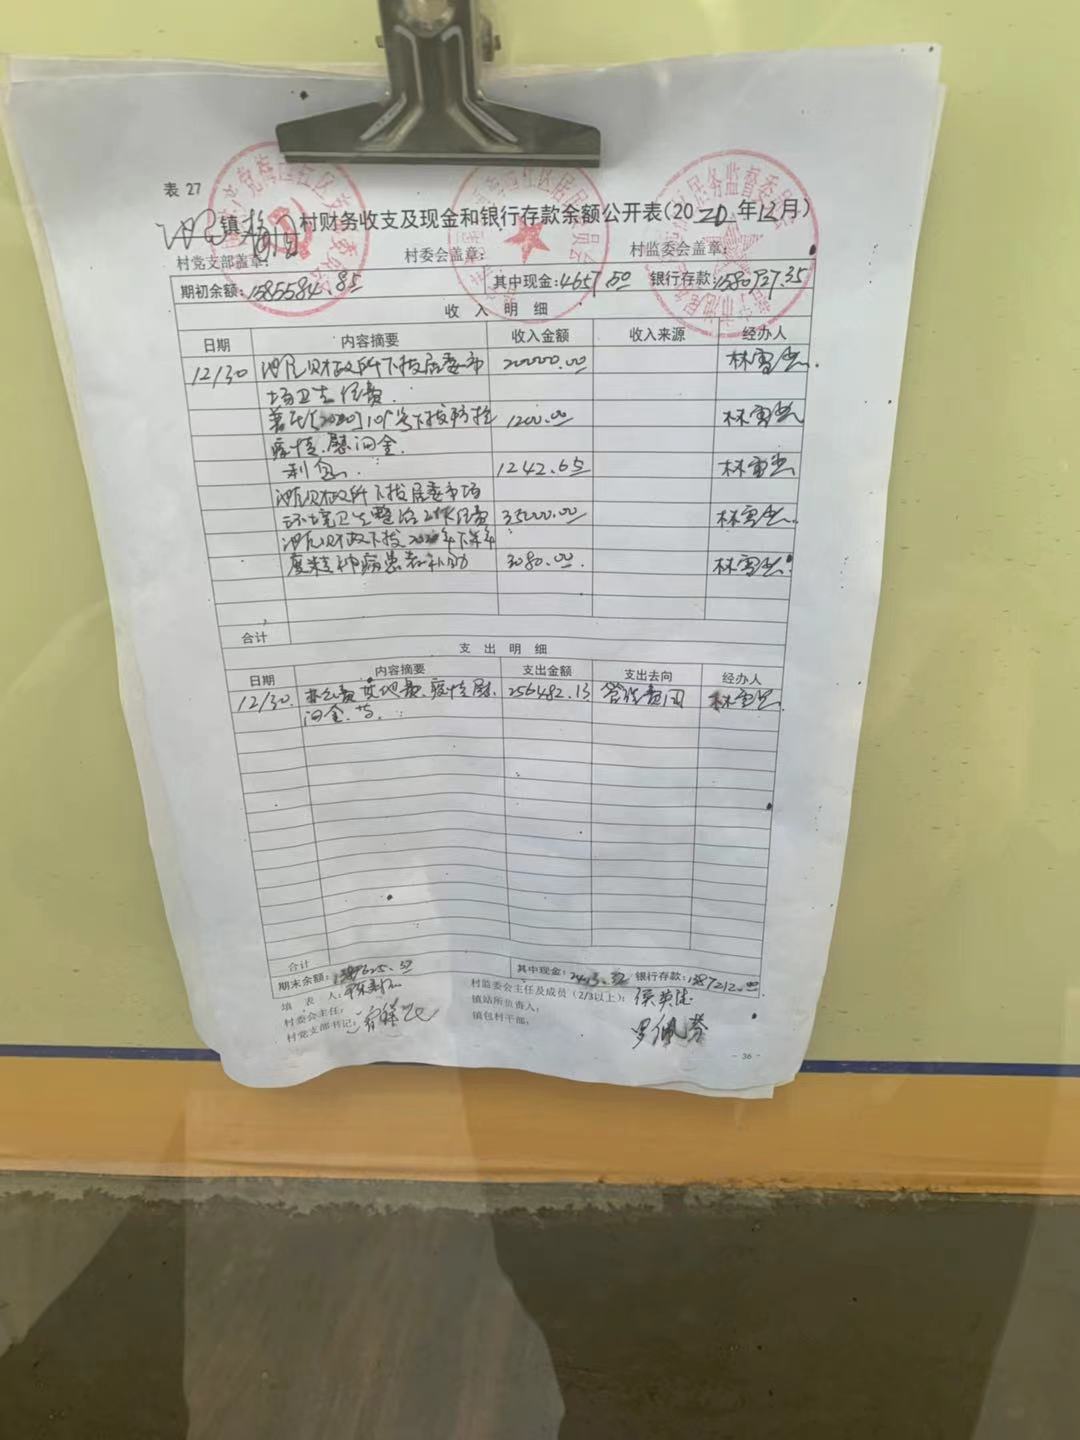 表 27
池尾镇 村财务收支及现金和银行存款余额公开表(2020年12月)
村党支部盖章: 村委会盖章: 村监委会盖章:
期初余额:1585584.85 其中现金:4657.50 银行存款:1580927.35
收 入 明 细
日期 内容摘要 收入金额 收入来源 经办人
12/30 池尾财政所下拨居委市 200000.00 林雪
场卫生经费.
号下拨防控 1200.00 林雪
疫情.慰问金.
利息. 1242.65 林雪
池尾财政所下拨居委市场
环境卫生整治工作经费 35000.00 林雪
池尾财政下拨2020年下半年
度精神病患者补助 3080.00 林雪
合计
支 出 明 细
日期 内容摘要 支出金额 支出去向 经办人
12/30. 办公费 疫情慰 256482.13 管理费用 林雪
问金.等.
合计
期末余额: 其中现金:2413.32 银行存款:1587212.00
填 表 人: 村监委会主任及成员(2/3以上):
村委会主任: 镇站所负责人:
村党支部书记: 镇包村干部:
- 36 -